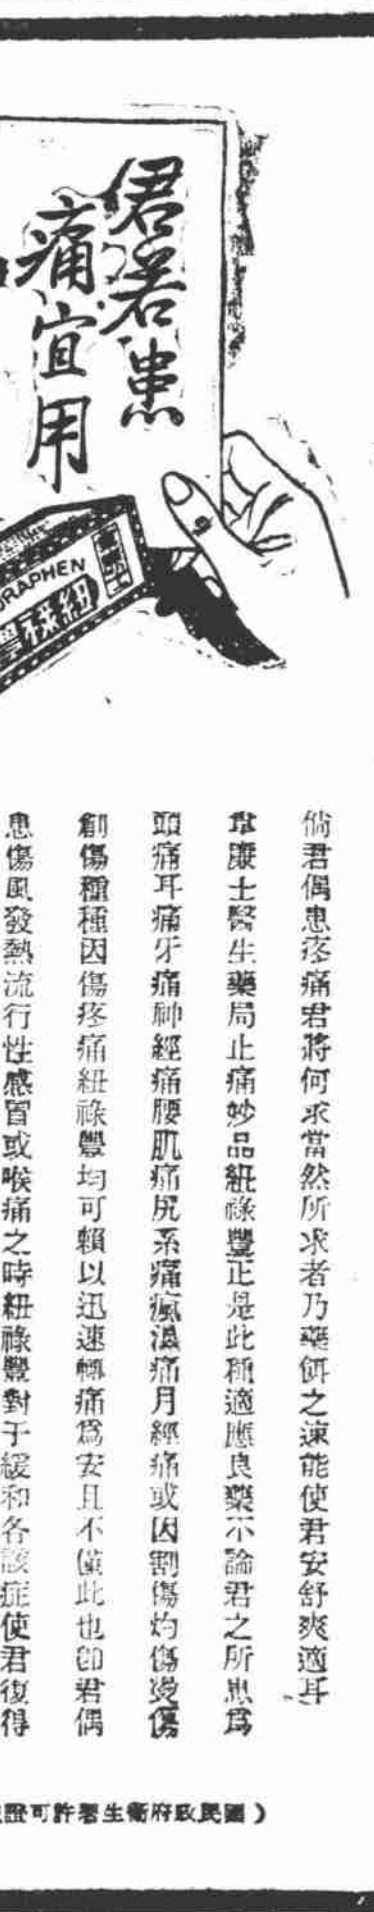 君若患
痛宜用
URAPHEN
紐祿豐
倘君偶患疼痛君將何求當然所求者乃藥餌之速能使君安舒爽適耳
韋廉士醫生藥局止痛妙品紐祿豐正是此種適應良藥不論君之所患爲
頭痛耳痛牙痛神經痛腰肌痛尻系痛瘋濕痛月經痛或因割傷灼傷燙傷
創傷種種因傷疼痛紐祿豐均可賴以迅速轉痛爲安且不僅此也卽君偶
患傷風發熱流行性感冒或喉痛之時紐祿豐對于緩和各該症使君復得
(國民政府衛生署許可證